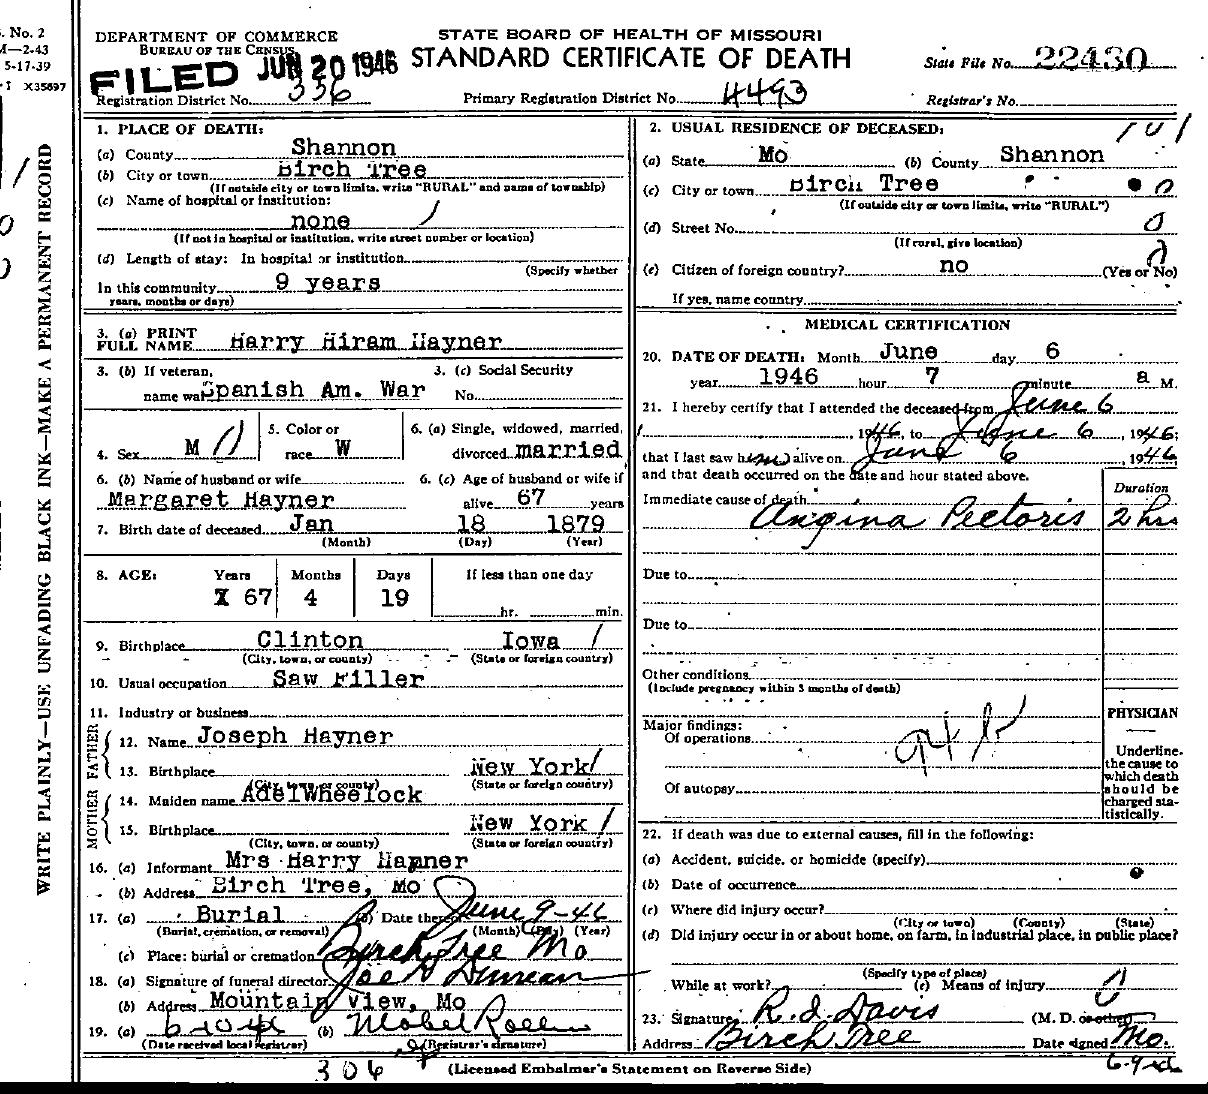 S. No. 2
M—2-43
5-17-39
X35697
WRITE PLAINLY—USE UNFADING BLACK INK—MAKE A PERMANENT RECORD
DEPARTMENT OF COMMERCE
BUREAU OF THE CENSUS
STATE BOARD OF HEALTH OF MISSOURI
STANDARD CERTIFICATE OF DEATH
FILED JUN 20 1946
State File No. 22430
Registration District No. 336
Primary Registration District No. 4493
Registrar's No.
1. PLACE OF DEATH:
(a) County Shannon
(b) City or town Birch Tree
(If outside city or town limits, write "RURAL" and name of township)
(c) Name of hospital or institution:
none
(If not in hospital or institution, write street number or location)
(d) Length of stay: In hospital or institution
(Specify whether
In this community 9 years
years, months or days)
3. (a) PRINT
FULL NAME Harry Hiram Hayner
3. (b) If veteran,
name war Spanish Am. War
3. (c) Social Security
No.
4. Sex M
5. Color or
race W
6. (a) Single, widowed, married,
divorced married
6. (b) Name of husband or wife
Margaret Hayner
6. (c) Age of husband or wife if
alive 67 years
7. Birth date of deceased Jan 18 1879
(Month) (Day) (Year)
8. AGE: Years Months Days If less than one day
67 4 19 hr. min.
9. Birthplace Clinton Iowa
(City, town, or county) (State or foreign country)
10. Usual occupation Saw Filler
11. Industry or business
FATHER
12. Name Joseph Hayner
13. Birthplace New York
(City, town, or county) (State or foreign country)
MOTHER
14. Maiden name AdelWheelock
15. Birthplace New York
(City, town, or county) (State or foreign country)
16. (a) Informant Mrs Harry Hayner
(b) Address Birch Tree, Mo
17. (a) Burial (b) Date thereof June 9-46
(Burial, cremation, or removal) (Month) (Day) (Year)
(c) Place: burial or cremation Birch Tree Mo
18. (a) Signature of funeral director Joe D Duncan
(b) Address Mountain View, Mo
19. (a) 6-10-46 (b) Mabel
(Date received local registrar) (Registrar's signature)
306
2. USUAL RESIDENCE OF DECEASED:
101
(a) State Mo (b) County Shannon
(c) City or town Birch Tree 0
(If outside city or town limits, write "RURAL")
(d) Street No. 0
(If rural, give location)
(e) Citizen of foreign country? no (Yes or No)
If yes, name country
MEDICAL CERTIFICATION
20. DATE OF DEATH: Month June day 6
year 1946 hour 7 minute a M.
21. I hereby certify that I attended the deceased from June 6
1946, to June 6, 1946;
that I last saw him alive on June 6 1946
and that death occurred on the date and hour stated above.
Duration
Immediate cause of death
Angina Pectoris 2 hrs
Due to
Due to
Other conditions
(Include pregnancy within 3 months of death)
Major findings:
Of operations
94b
Of autopsy
PHYSICIAN
Underline
the cause to
which death
should be
charged sta-
tistically.
22. If death was due to external causes, fill in the following:
(a) Accident, suicide, or homicide (specify)
(b) Date of occurrence
(c) Where did injury occur?
(City or town) (County) (State)
(d) Did injury occur in or about home, on farm, in industrial place, in public place?
(Specify type of place)
While at work? (e) Means of injury
23. Signature R. I. Davis (M. D. or other)
Address Birch Tree Mo. Date signed
6-9-46
(Licensed Embalmer's Statement on Reverse Side)